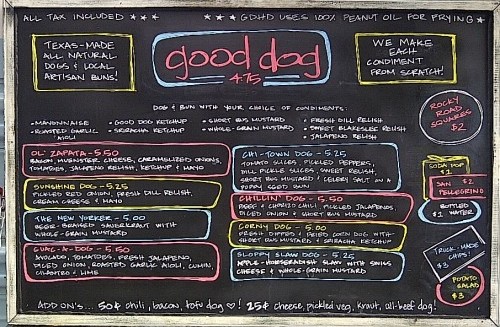 ALL TAX INCLUDED ★ ★ ★
★ ★ ★ GDHD USES 100% PEANUT OIL FOR FRYING ★
TEXAS-MADE
ALL NATURAL
DOGS & LOCAL
ARTISAN BUNS!
good dog
4.75
WE MAKE
EACH
CONDIMENT
FROM SCRATCH!
DOG & BUN WITH YOUR CHOICE OF CONDIMENTS:
• MAYONNAISE
• ROASTED GARLIC AIOLI
• GOOD DOG KETCHUP
• SRIRACHA KETCHUP
• SHORT BUS MUSTARD
• WHOLE-GRAIN MUSTARD
• FRESH DILL RELISH
• SWEET BLAKESLEE RELISH
• JALAPENO RELISH
ROCKY
ROAD
SQUARES
$2
OL' ZAPATA - 5.50
BACON, MUENSTER CHEESE, CARAMELIZED ONIONS,
TOMATOES, JALAPENO RELISH, KETCHUP & MAYO
SUNSHINE DOG - 5.25
PICKLED RED ONION, FRESH DILL RELISH,
CREAM CHEESE & MAYO
THE NEW YORKER - 5.00
BEER-BRAISED SAUERKRAUT WITH
WHOLE-GRAIN MUSTARD
GUAC-A-DOG - 5.50
AVOCADO, TOMATOES, FRESH JALAPENO,
DICED ONION, ROASTED GARLIC AIOLI, CUMIN,
CILANTRO & LIME
CHI-TOWN DOG - 5.25
TOMATO SLICES, PICKLED PEPPERS,
DILL PICKLE SLICES, SWEET RELISH,
SHORT BUS MUSTARD & CELERY SALT ON A
POPPY SEED BUN
CHILLIN' DOG - 5.50
BEEF & CHORIZO CHILI, PICKLED JALAPENOS,
DICED ONION & SHORT BUS MUSTARD
CORNY DOG - 5.00
FRESH DIPPED & FRIED CORN DOG WITH
SHORT BUS MUSTARD & SRIRACHA KETCHUP
SLOPPY SLAW DOG - 5.25
APPLE-HORSERADISH SLAW WITH SWISS
CHEESE & WHOLE-GRAIN MUSTARD
SODA POP
$1
SAN $2
PELLEGRINO
BOTTLED
$1 WATER
TRUCK-MADE
CHIPS!
$3
POTATO
SALAD
$3
ADD ON'S... 50¢ chili, bacon, tofu dog ♡! 25¢ cheese, pickled veg, kraut, all-beef dog!